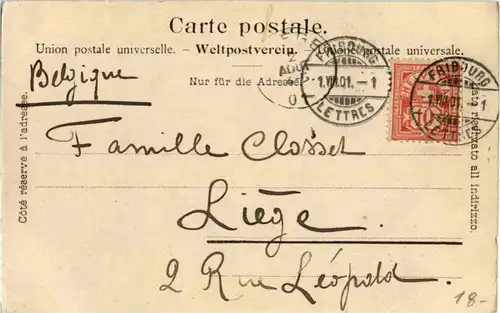 Carte postale.
Union postale universelle. – Weltpostverein. – Unione postale universale.
Nur für die Adresse
Côté réservé à l'adresse.
Lato riservato all indirizzo.
AOUT
FRIBOURG
1.VIII.01.–1
LETTRES
FRIBOURG
1.VIII.01.–1
LETTRES
10
Belgique
Famille Closset
Liège.
2 Rue Léopold.
18.-